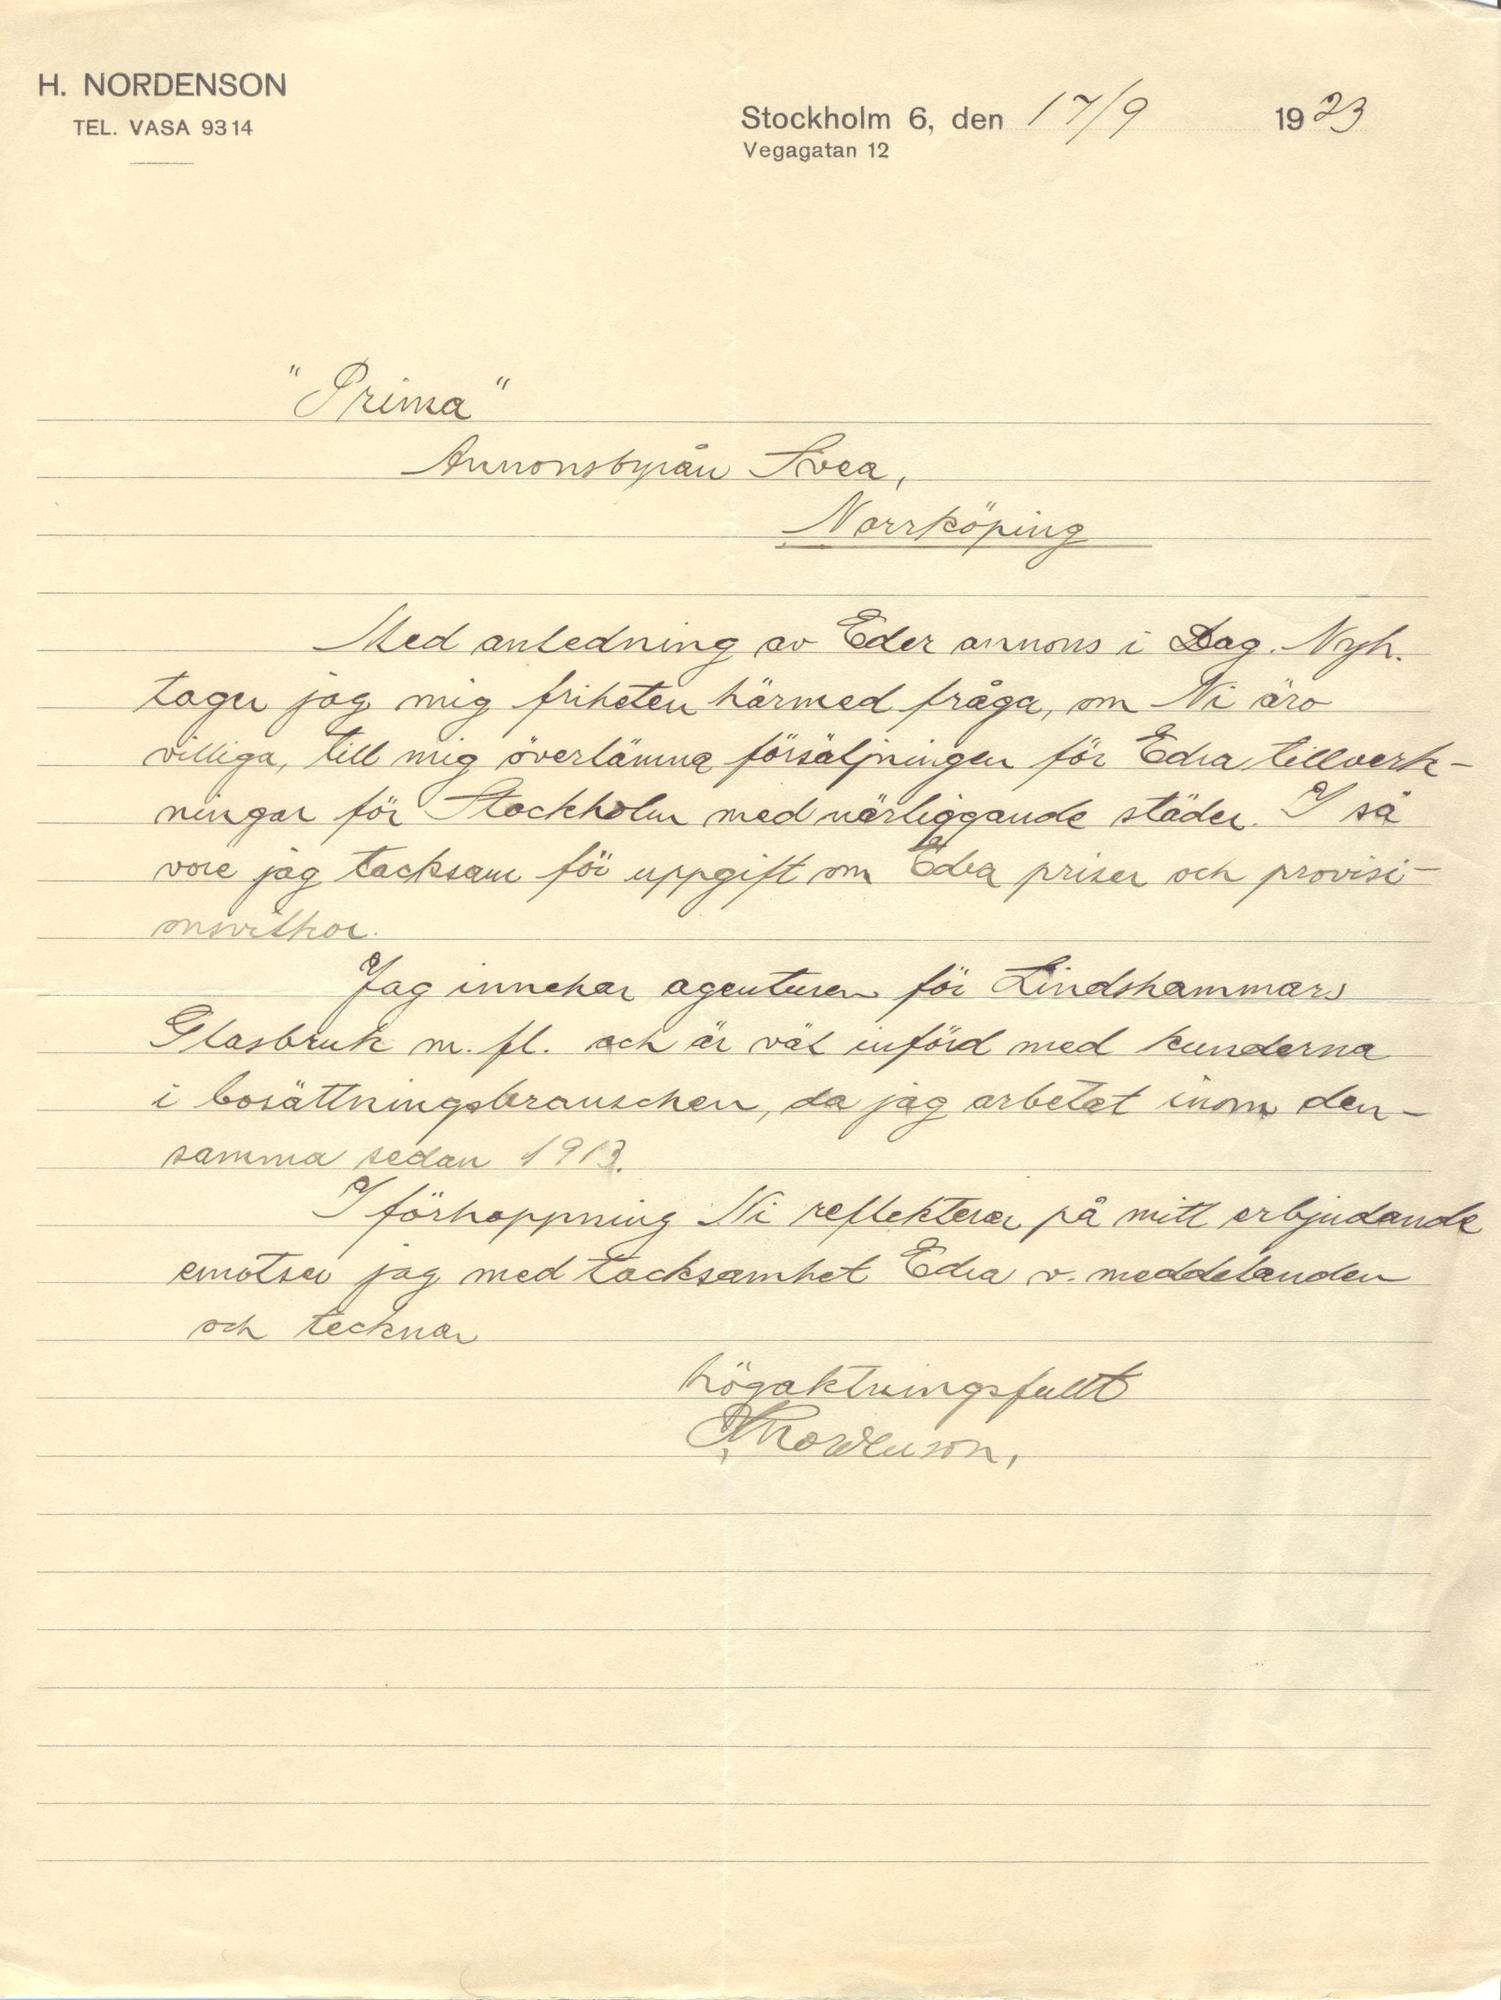 H. NORDENSON
TEL. VASA 9314
Stockholm 6, den 17/9 1923
Vegagatan 12
"Prima"
Annonsbyrån Svea,
Norrköping
Med anledning av Eder annons i Dag. Nyh.
tager jag mig friheten härmed fråga, om Ni äro
villiga, till mig överlämna försäljningen för Edra tillverk-
ningar för Stockholm med närliggande städer. I så
vore jag tacksam för uppgift om Edra priser och provisi-
onsvilkor.
Jag innehar agenturen för Lindshammars
Glasbruk m. fl. och är väl införd med kunderna
i bosättningsbranschen, da jag arbetat inom den-
samma sedan 1913.
I förhoppning Ni reflekterar på mitt erbjudande
emotser jag med tacksamhet Edra v. meddelanden
och tecknar
högaktningsfullt
HNordenson,